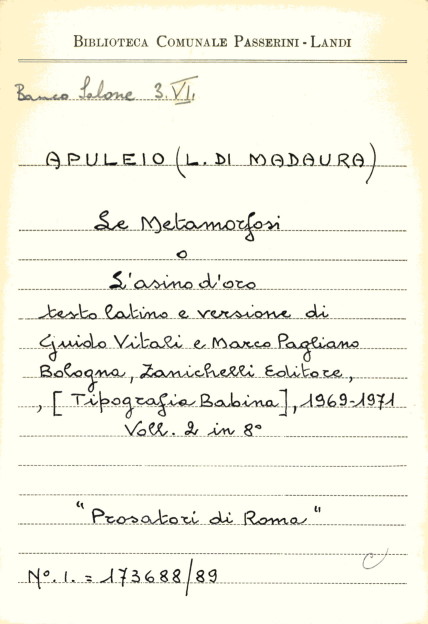 BIBLIOTECA COMUNALE PASSERINI-LANDI
Banco Salone 3.VI.
APULEIO (L. DI MADAURA)
Le Metamorfosi
o
L'asino d'oro
testo latino e versione di
Guido Vitali e Marco Pagliano
Bologna, Zanichelli Editore,
, [Tipografia Babina], 1969-1971
Voll. 2 in 8°
"Prosatori di Roma"
N°. I. = 173688/89